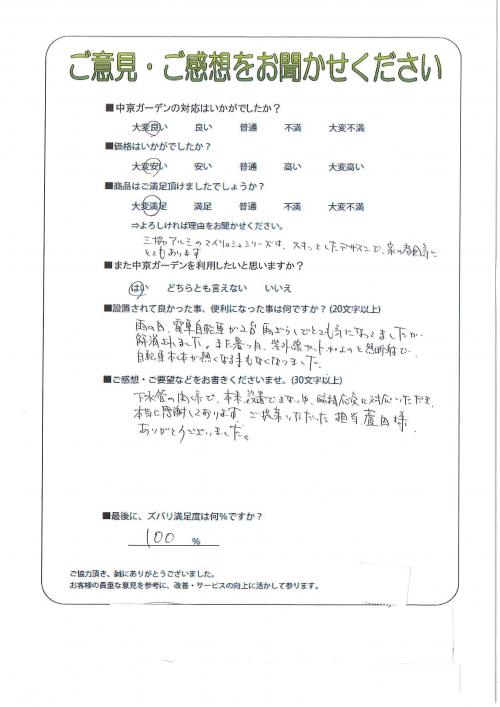 ご意見・ご感想をお聞かせください
■中京ガーデンの対応はいかがでしたか？
大変良い 良い 普通 不満 大変不満
■価格はいかがでしたか？
大変安い 安い 普通 高い 大変高い
■商品はご満足頂けましたでしょうか？
大変満足 満足 普通 不満 大変不満
⇒よろしければ理由をお聞かせください。
三協アルミのマイリッシュシリーズは、スキッとしたデザインで、家の雰囲気に
とてもあいます
■また中京ガーデンを利用したいと思いますか？
はい どちらとも言えない いいえ
■設置されて良かった事、便利になった事は何ですか？(20文字以上)
雨の日、電車自転車が
解消されました。また暑い日、紫外線カットと熱断材で、
自転車本体が熱くなる事もなくなりました。
■ご感想・ご要望などをお書きくださいませ。(30文字以上)
下水管の関係で、本来設置できない中、臨機応変に対応いただき、
本当に感謝しております ご提案いただいた担当 様、
ありがとうございました。
■最後に、ズバリ満足度は何％ですか？
100 %
ご協力頂き、誠にありがとうございました。
お客様の貴重な意見を参考に、改善・サービスの向上に活かして参ります。